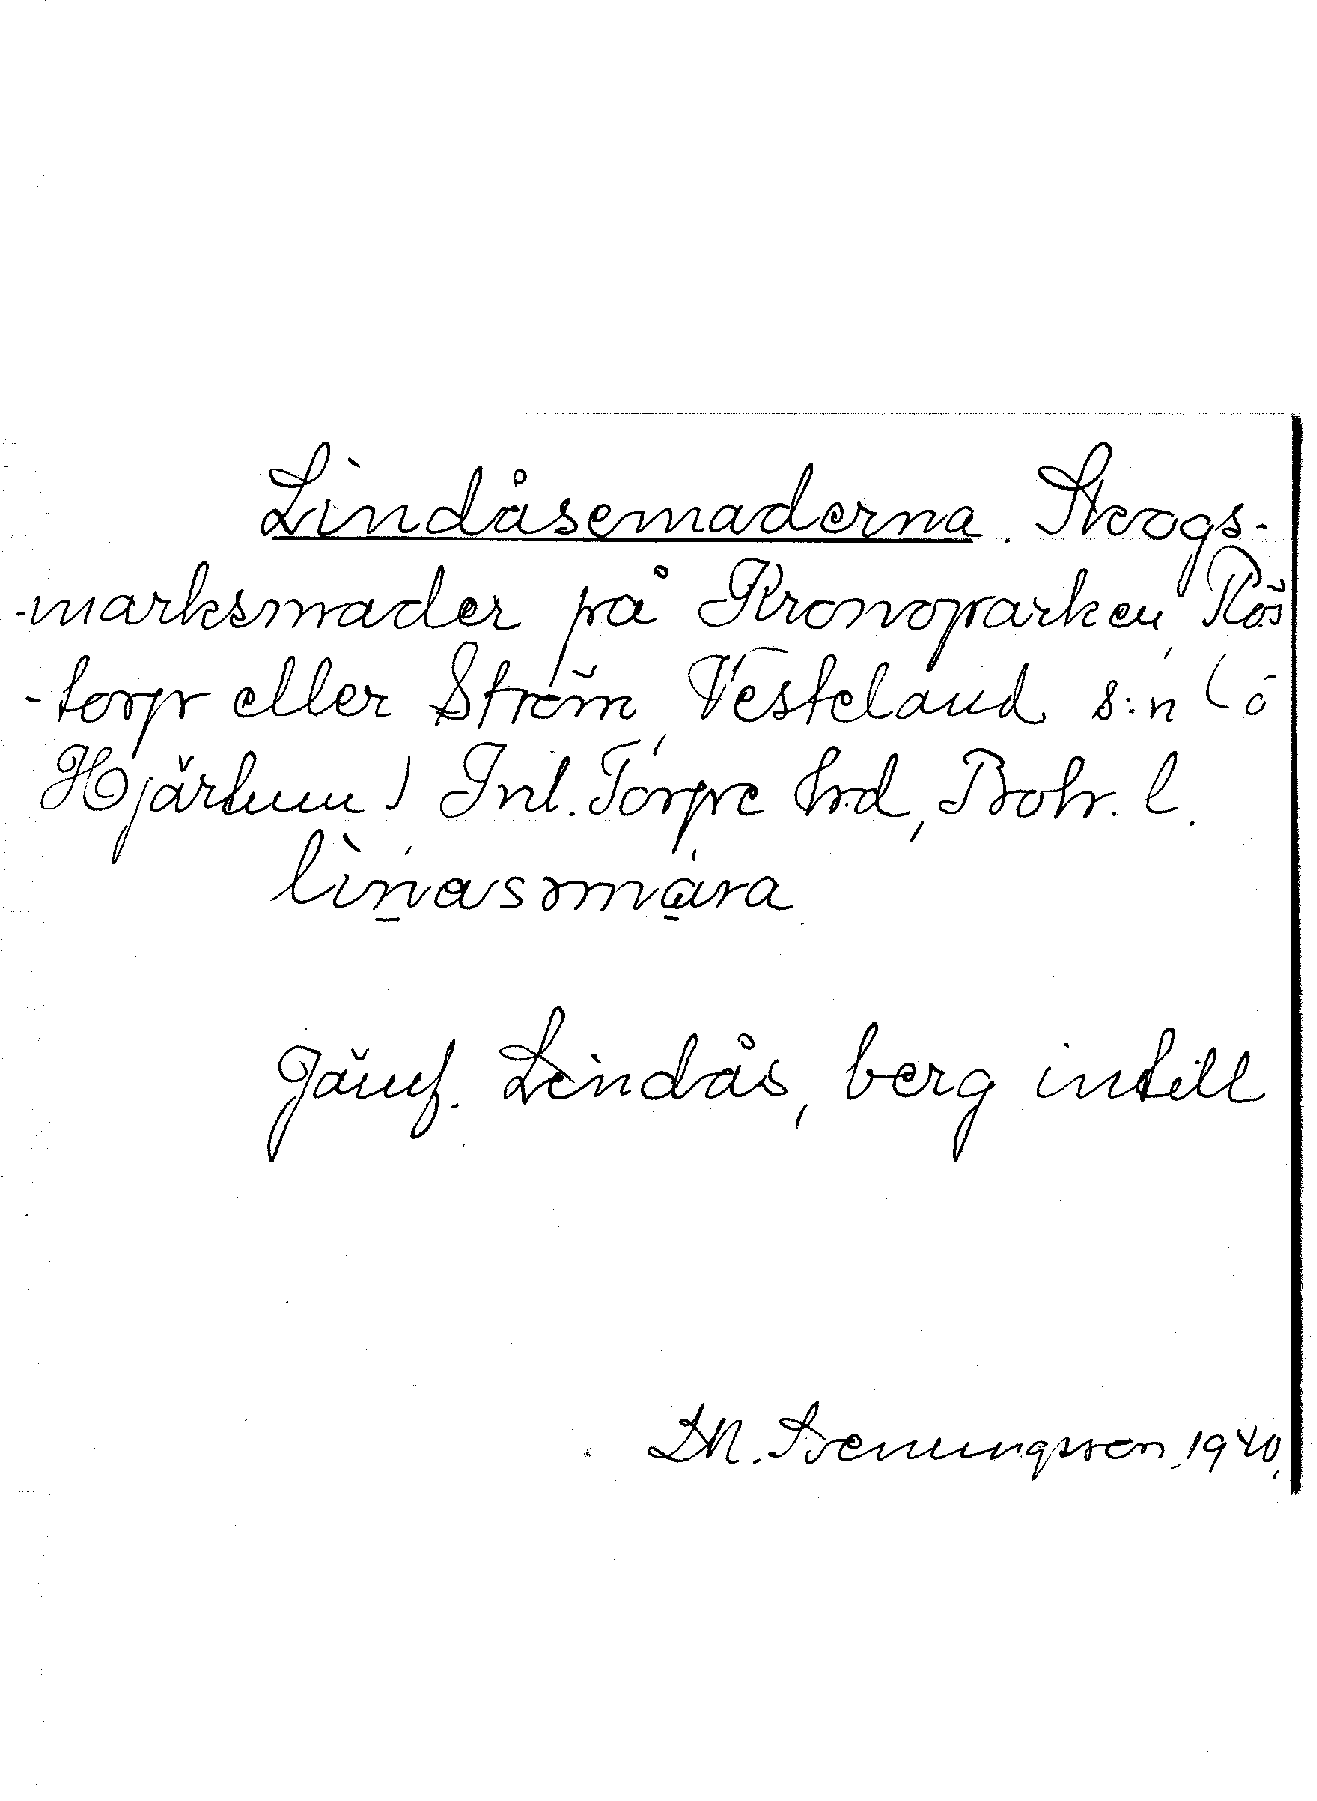 Lindåsemaderna. Skogs-
-marksmader på Kronoparken Rös
-torp eller Ström, Vesteland s:n (ö
Hjärtum) Inl. Torpe hrd, Boh. l.
Jämf. Lindås, berg intill
1940.